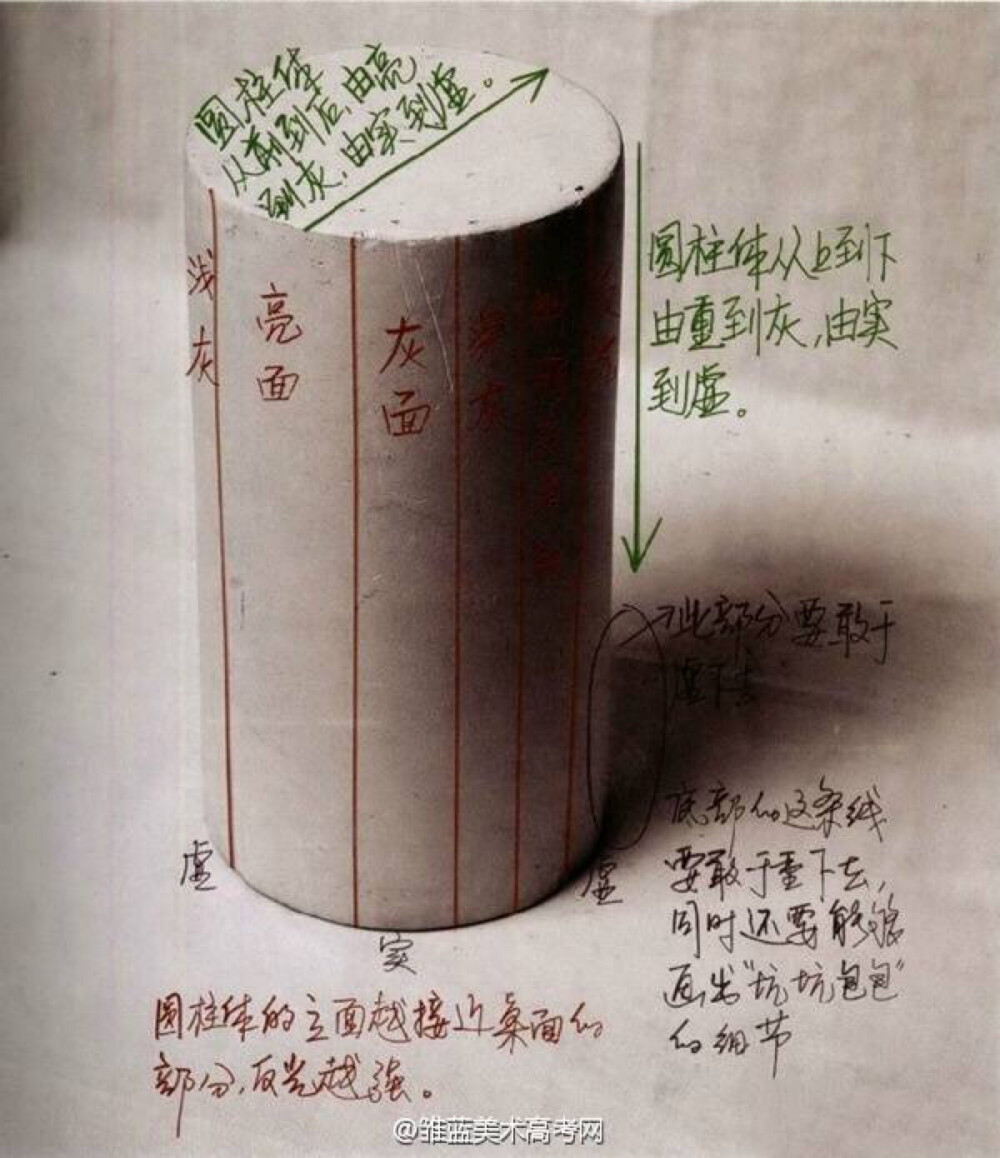 圆柱体
从前到后,由亮
到灰,由实到虚。
浅灰
亮面
灰面
深灰
圆柱体从上到下
由重到灰,由实
到虚。
此部分要敢于
虚下去
底部的这条线
要敢于重下去,
同时还要能够
画出"坑坑包包"
的细节
虚
实
虚
圆柱体的立面越接近桌面的
部分,反光越强。
@雏蓝美术高考网